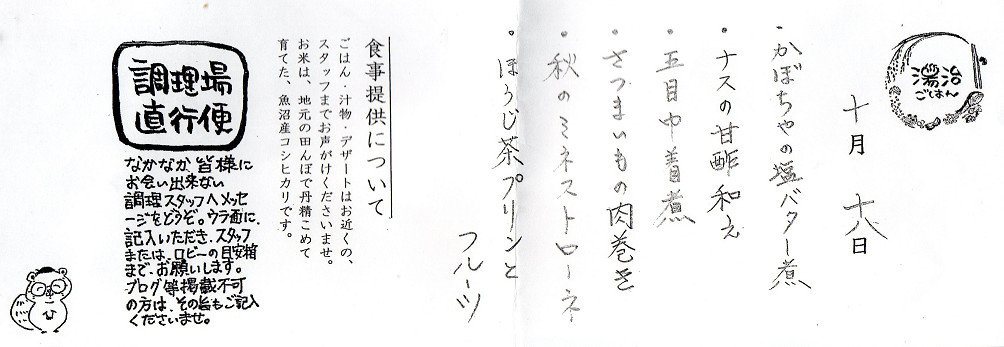 湯治
ごはん
十月 十八日
・かぼちゃの塩バター煮
・ナスの甘酢和え
・五目巾着煮
・さつまいもの肉巻き
・秋のミネストローネ
・ほうじ茶プリンと
フルーツ
食事提供について
ごはん・汁物・デザートはお近くの、
スタッフまでお声がけくださいませ。
お米は、地元の田んぼで丹精こめて
育てた、魚沼産コシヒカリです。
調理場
直行便
なかなか皆様に
お会い出来ない
調理スタッフへメッセ
ージをどうぞ。ウラ面に、
記入いただき、スタッフ
または、ロビーの目安箱
まで、お願いします。
ブログ等掲載不可
の方は、その旨もご記入
くださいませ。